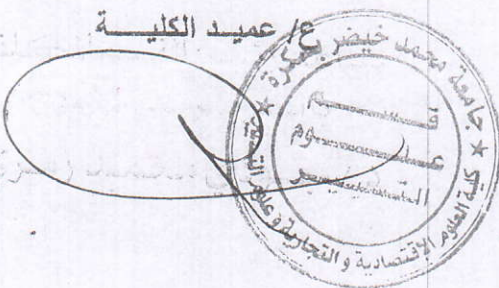 ع/ عميـد الكليــــة
جامعة محمد خيضر بسكرة
كلية العلوم الاقتصادية و التجارية و علوم التسيير
قســـــم
علـــــوم
التسييـــر